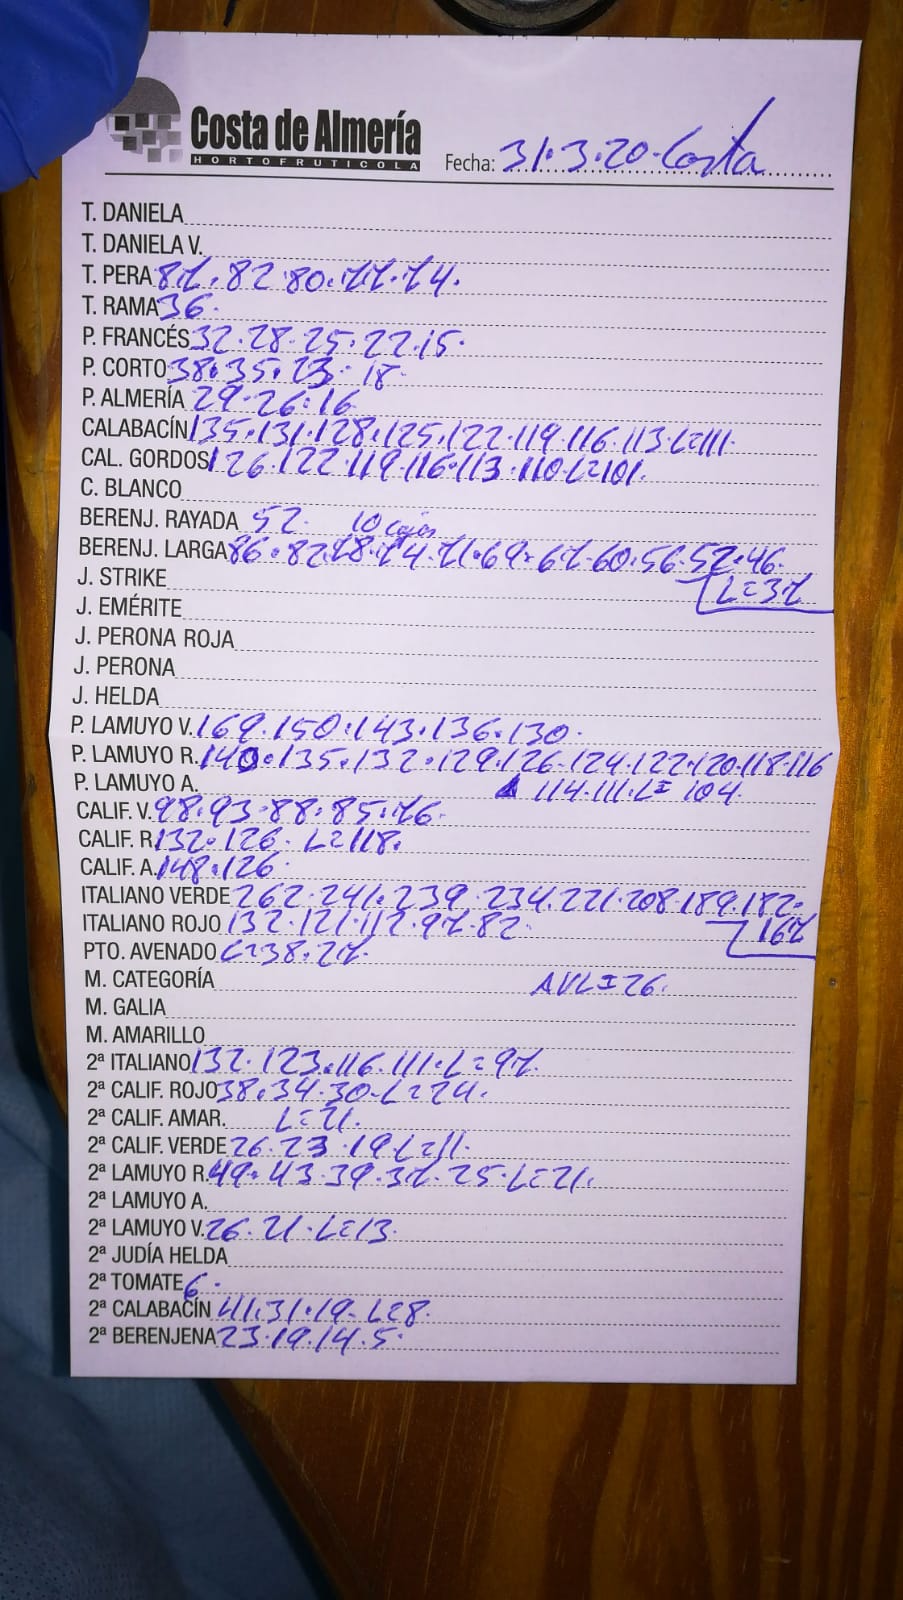 Costa de Almería
HORTOFRUTICOLA
Fecha: 31.3.20.Costa
T. DANIELA
T. DANIELA V.
T. PERA 87.82.80.77.74.
T. RAMA 36.
P. FRANCÉS 32.28.25.22.15.
P. CORTO 38.35.23.18.
P. ALMERÍA 29.26.16
CALABACÍN 135.131.128.125.122.119.116.113.L=111.
CAL. GORDOS 126.122.119.116.113.110.L=101.
C. BLANCO
BERENJ. RAYADA 52. 10 cajas
BERENJ. LARGA 86.82.78.74.71.69.67.60.56.52.46.
J. STRIKE L=37
J. EMÉRITE
J. PERONA ROJA
J. PERONA
J. HELDA
P. LAMUYO V. 169.150.143.136.130.
P. LAMUYO R. 140.135.132.129.126.124.122.120.118.116
P. LAMUYO A. 114.111.L=104.
CALIF. V. 98.93.88.85.76.
CALIF. R. 132.126. L=118.
CALIF. A. 148.126.
ITALIANO VERDE 262.241.239.234.221.208.189.182.
ITALIANO ROJO 132.121.112.97.82. 167
PTO. AVENADO L=38.27.
M. CATEGORÍA AVL=26.
M. GALIA
M. AMARILLO
2ª ITALIANO 132.123.116.111.L=97.
2ª CALIF. ROJO 38.34.30.L=24.
2ª CALIF. AMAR. L=21.
2ª CALIF. VERDE 26.23.19.L=11.
2ª LAMUYO R. 49.43.39.37.25.L=21.
2ª LAMUYO A.
2ª LAMUYO V. 26.21.L=13.
2ª JUDÍA HELDA
2ª TOMATE 6.
2ª CALABACÍN 41.31.19.L=8.
2ª BERENJENA 23.19.14.5.